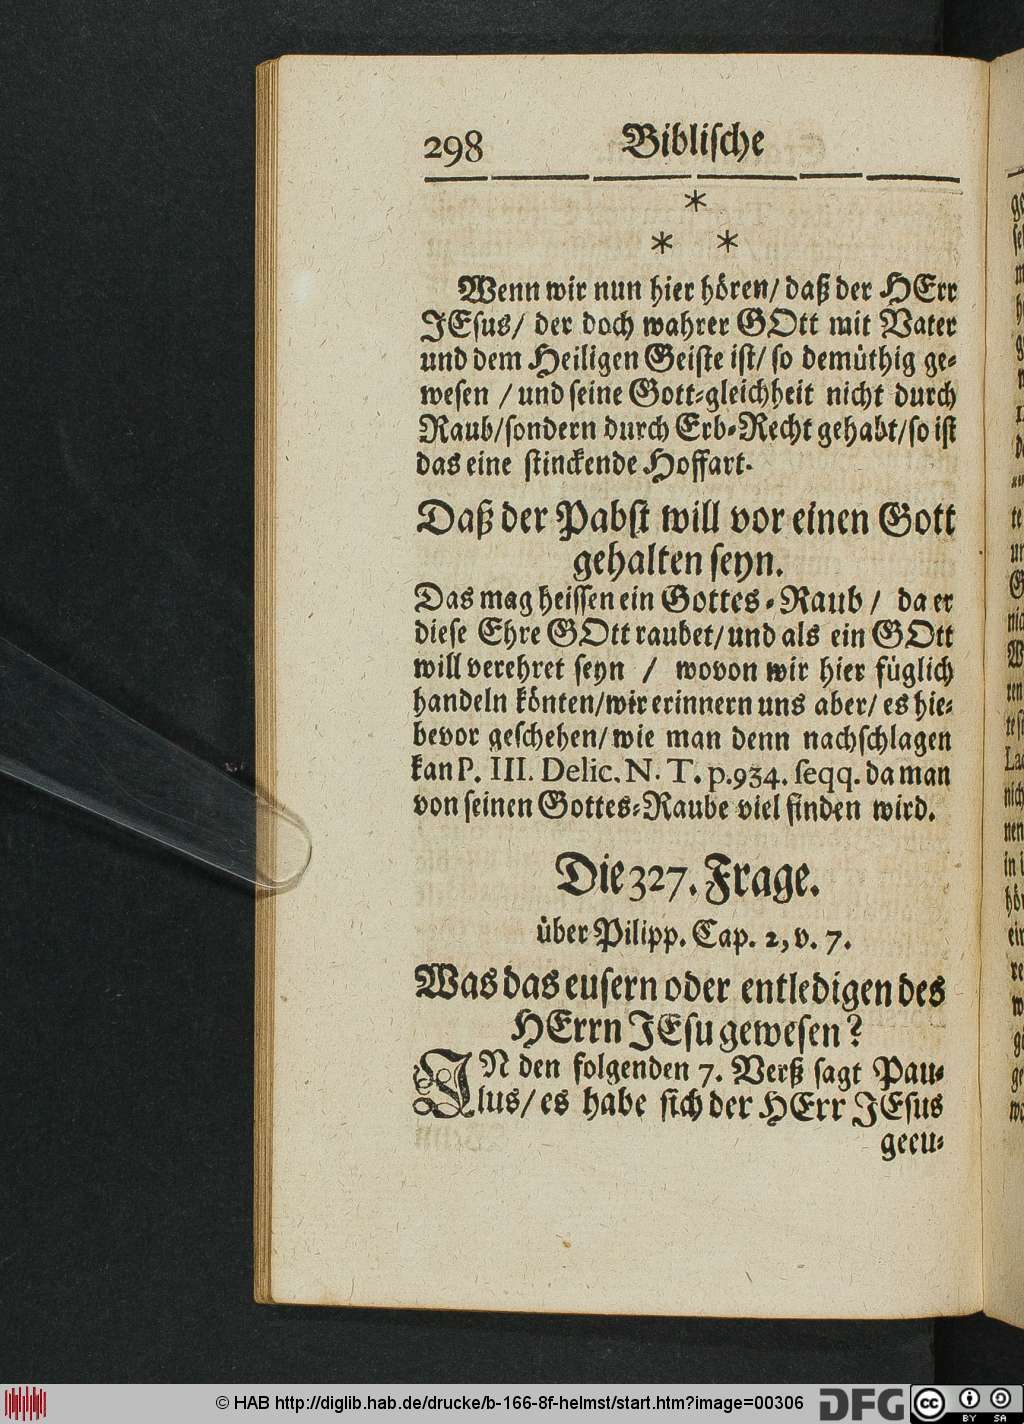 298 Biblische
*
* *
Wenn wir nun hier hören/ daß der HErr
JEsus/ der doch wahrer GOtt mit Vater
und dem Heiligen Geiste ist/ so demüthig ge-
wesen / und seine Gott-gleichheit nicht durch
Raub/sondern durch Erb-Recht gehabt/so ist
das eine stinckende Hoffart.
Daß der Pabst will vor einen Gott
gehalten seyn.
Das mag heissen ein Gottes-Raub / da er
diese Ehre GOtt raubet/ und als ein GOtt
will verehret seyn / wovon wir hier füglich
handeln könten/wir erinnern uns aber/ es hie-
bevor geschehen/ wie man denn nachschlagen
kan P. III. Delic. N. T. p.934. seqq. da man
von seinen Gottes-Raube viel finden wird.
Die 327. Frage.
über Pilipp. Cap. 2, v. 7.
Was das eusern oder entledigen des
HErrn JEsu gewesen?
IN den folgenden 7. Verß sagt Pau-
lus/ es habe sich der HErr JEsus
geeu-
© HAB http://diglib.hab.de/drucke/b-166-8f-helmst/start.htm?image=00306 DFG cc BY SA